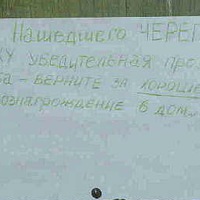 Нашедшего ЧЕРЕП
КУ УБЕДИТЕЛЬНАЯ ПРО
БА - ВЕРНИТЕ ЗА ХОРОШЕ
ВОЗНАГРОЖДЕНИЕ В ДОМ